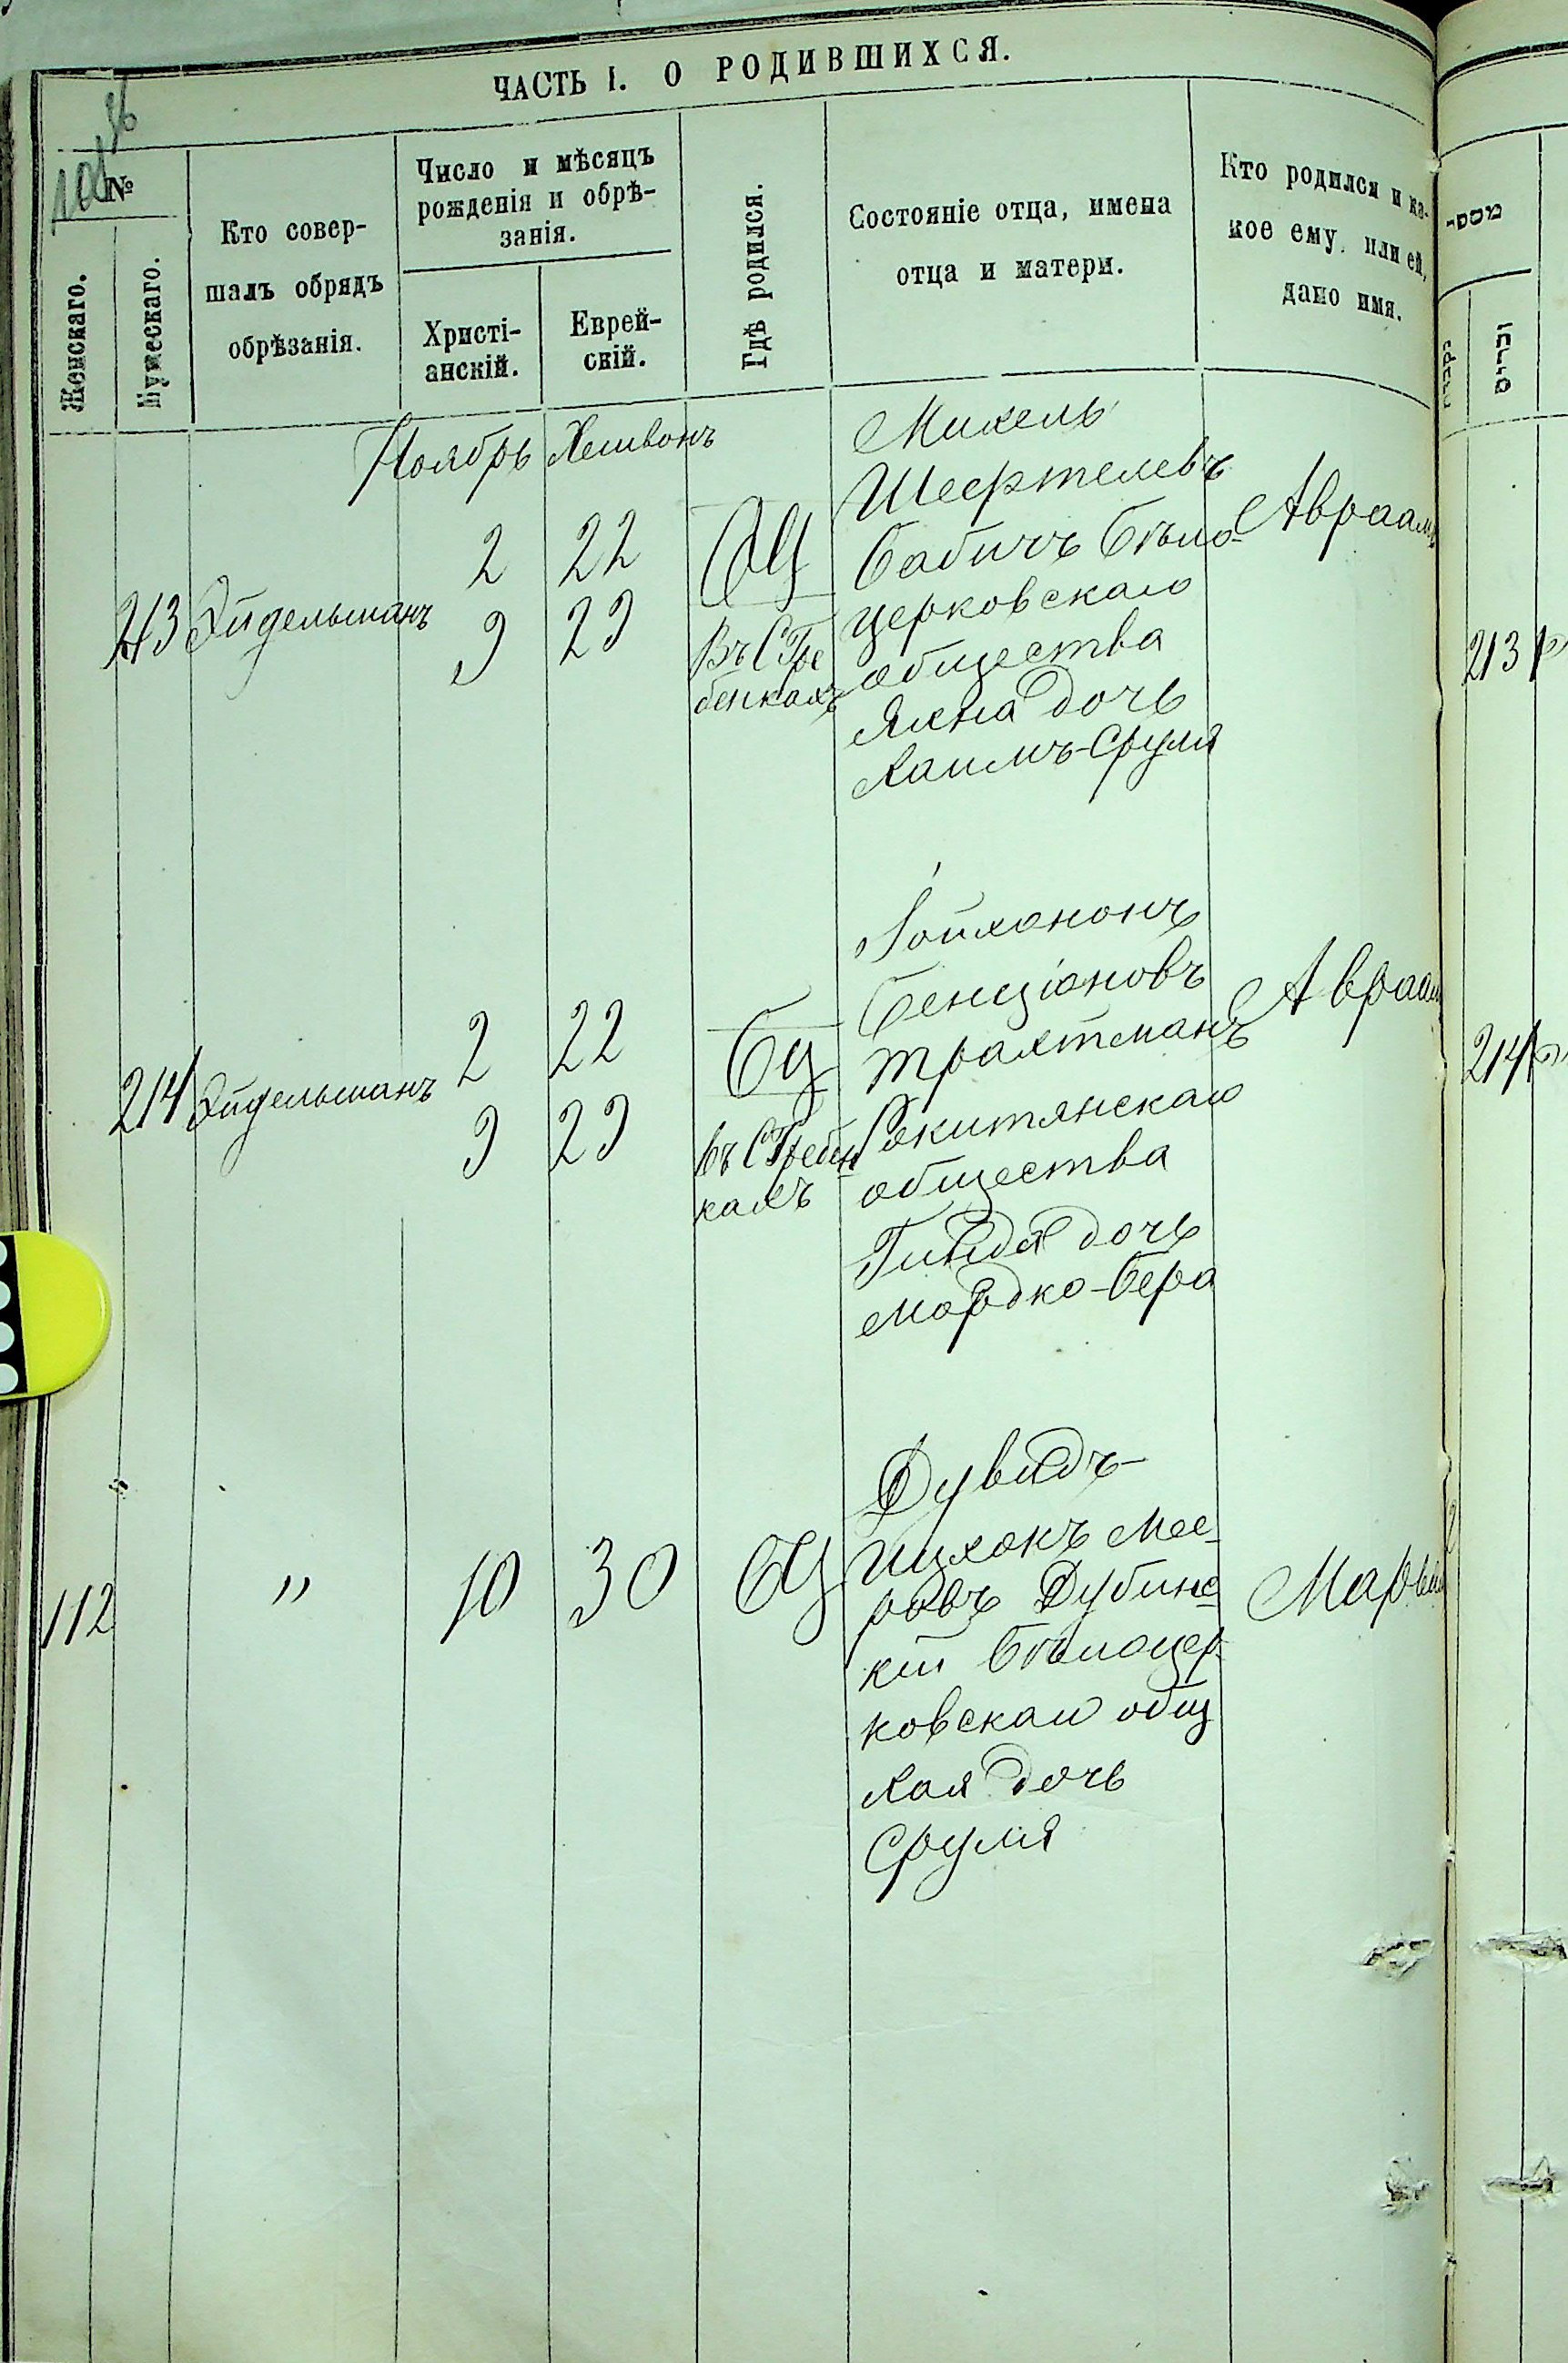 ЧАСТЬ I. О РОДИВШИХСЯ.
№
Женскаго.
Мужескаго.
Кто совер-
шалъ обрядъ
обрѣзанія.
Число и мѣсяцъ
рожденія и обрѣ-
занія.
Христі-
анскій.
Еврей-
скій.
Гдѣ родился.
Состояніе отца, имена
отца и матери.
Кто родился и ка-
кое ему, или ей,
дано имя.
Ноябрь Хешвонъ
213 Эйдельманъ
2 22
9 29
БЦ
Въ С Гре
бенкахъ
Михель
Шефтелевъ
Бабичъ Бѣло-
церковскаго
общества
Яхна дочь
Хаимъ-Сруля
Авраамъ
214 Эйдельманъ
2 22
9 29
БЦ
въ С Гребен
кахъ
Іойхононъ
Бенціоновъ
Трахтманъ
Рокитянскаго
общества
Гинда дочь
Мордко-Бера
Авраам
112
"
10 30
БЦ
Дувидъ-
Ицхокъ Мее-
ровъ Дубинс-
кій Бѣлоцер-
ковскаго общ
Хая дочь
Сруля
213
214